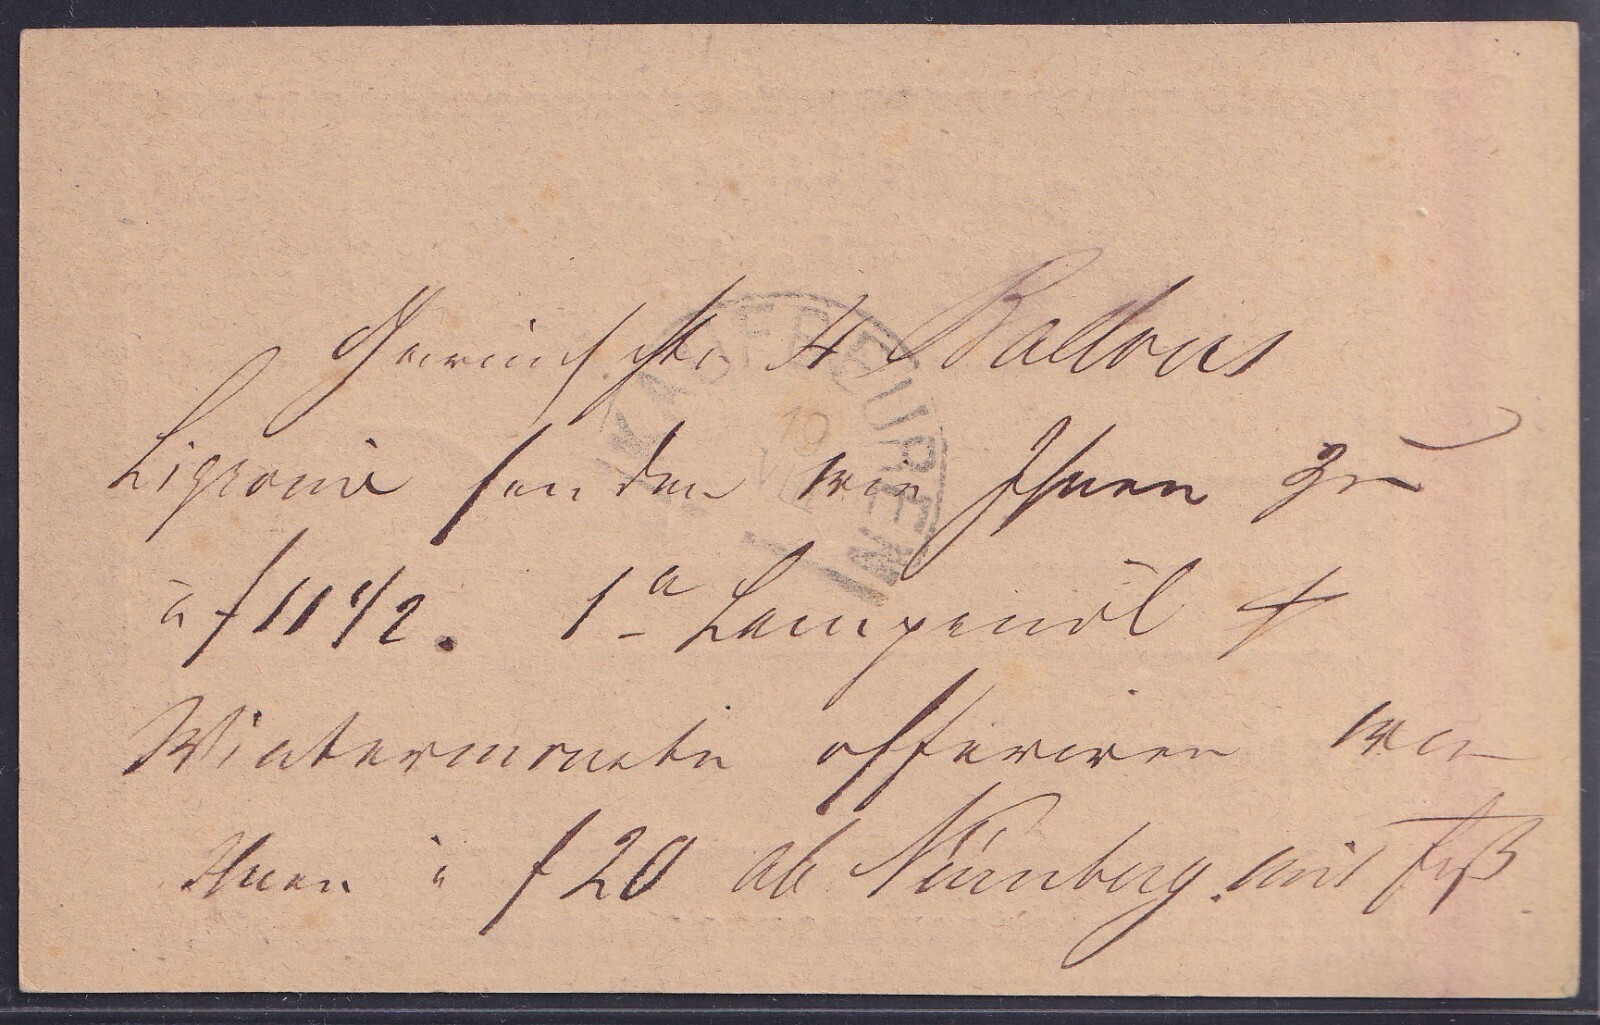 Gewünschte 4 Ballons
Ligroine senden wir Ihnen zu
à f 11 1/2. 1a Lampenöl p
Wintermonate offeriren wir
Ihnen à f 20 ab Nürnberg. mit Faß
KAUFBEUREN
10
VII